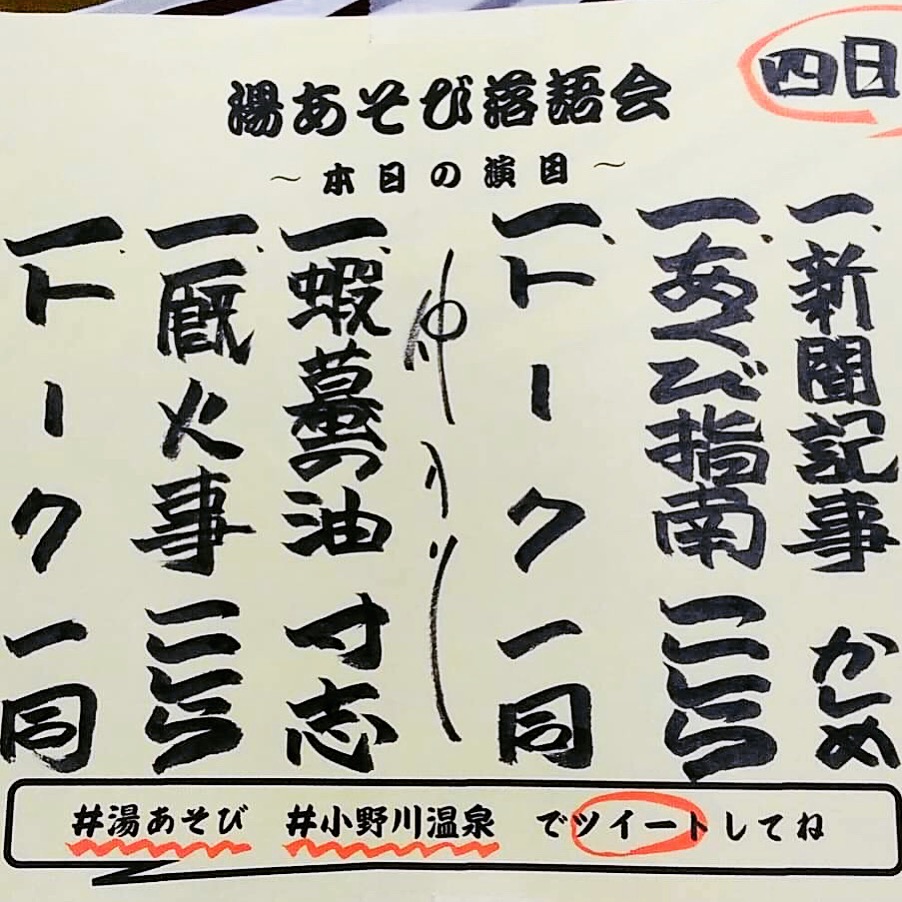 四日
湯あそび落語会
～本日の演目～
一、新聞記事 かしめ
一、あくび指南 こしら
一、トーク 一同
仲入り
一、蝦蟇の油 寸志
一、厩火事 こしら
一、トーク 一同
#湯あそび #小野川温泉 でツイートしてね